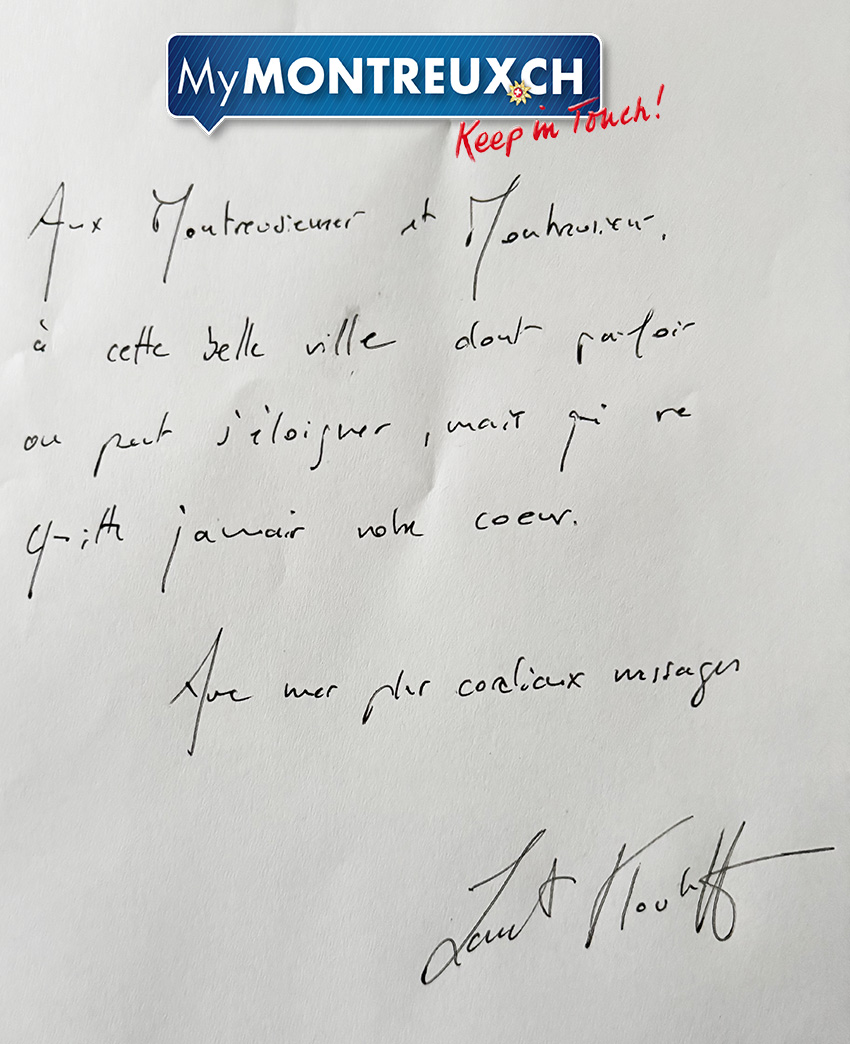 MyMONTREUX.CH
Keep in Touch!
Aux Montreusiennes et Montreusiens,
à cette belle ville dont parfois
on peut s'éloigner, mais qui ne
quitte jamais votre coeur.
Avec mes plus cordiaux messages
Laurent Flouhff